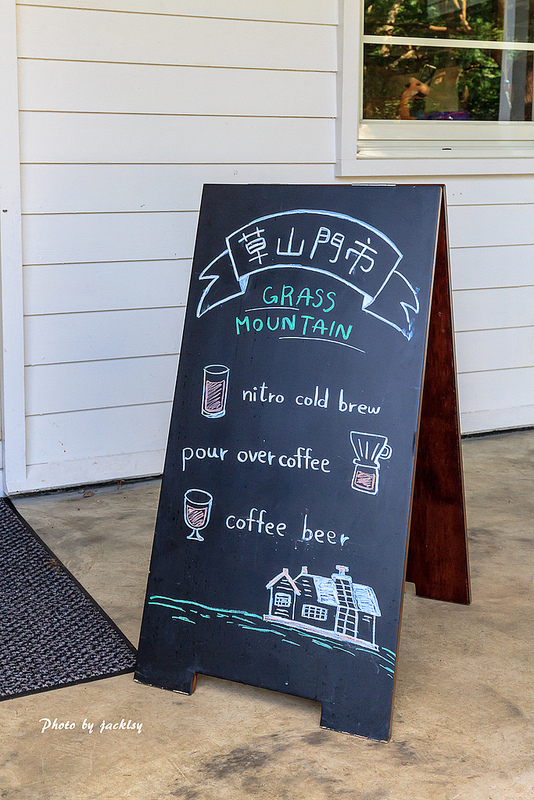 草山門市
GRASS
MOUNTAIN
nitro cold brew
pour over coffee
coffee beer
Photo by jacklsy